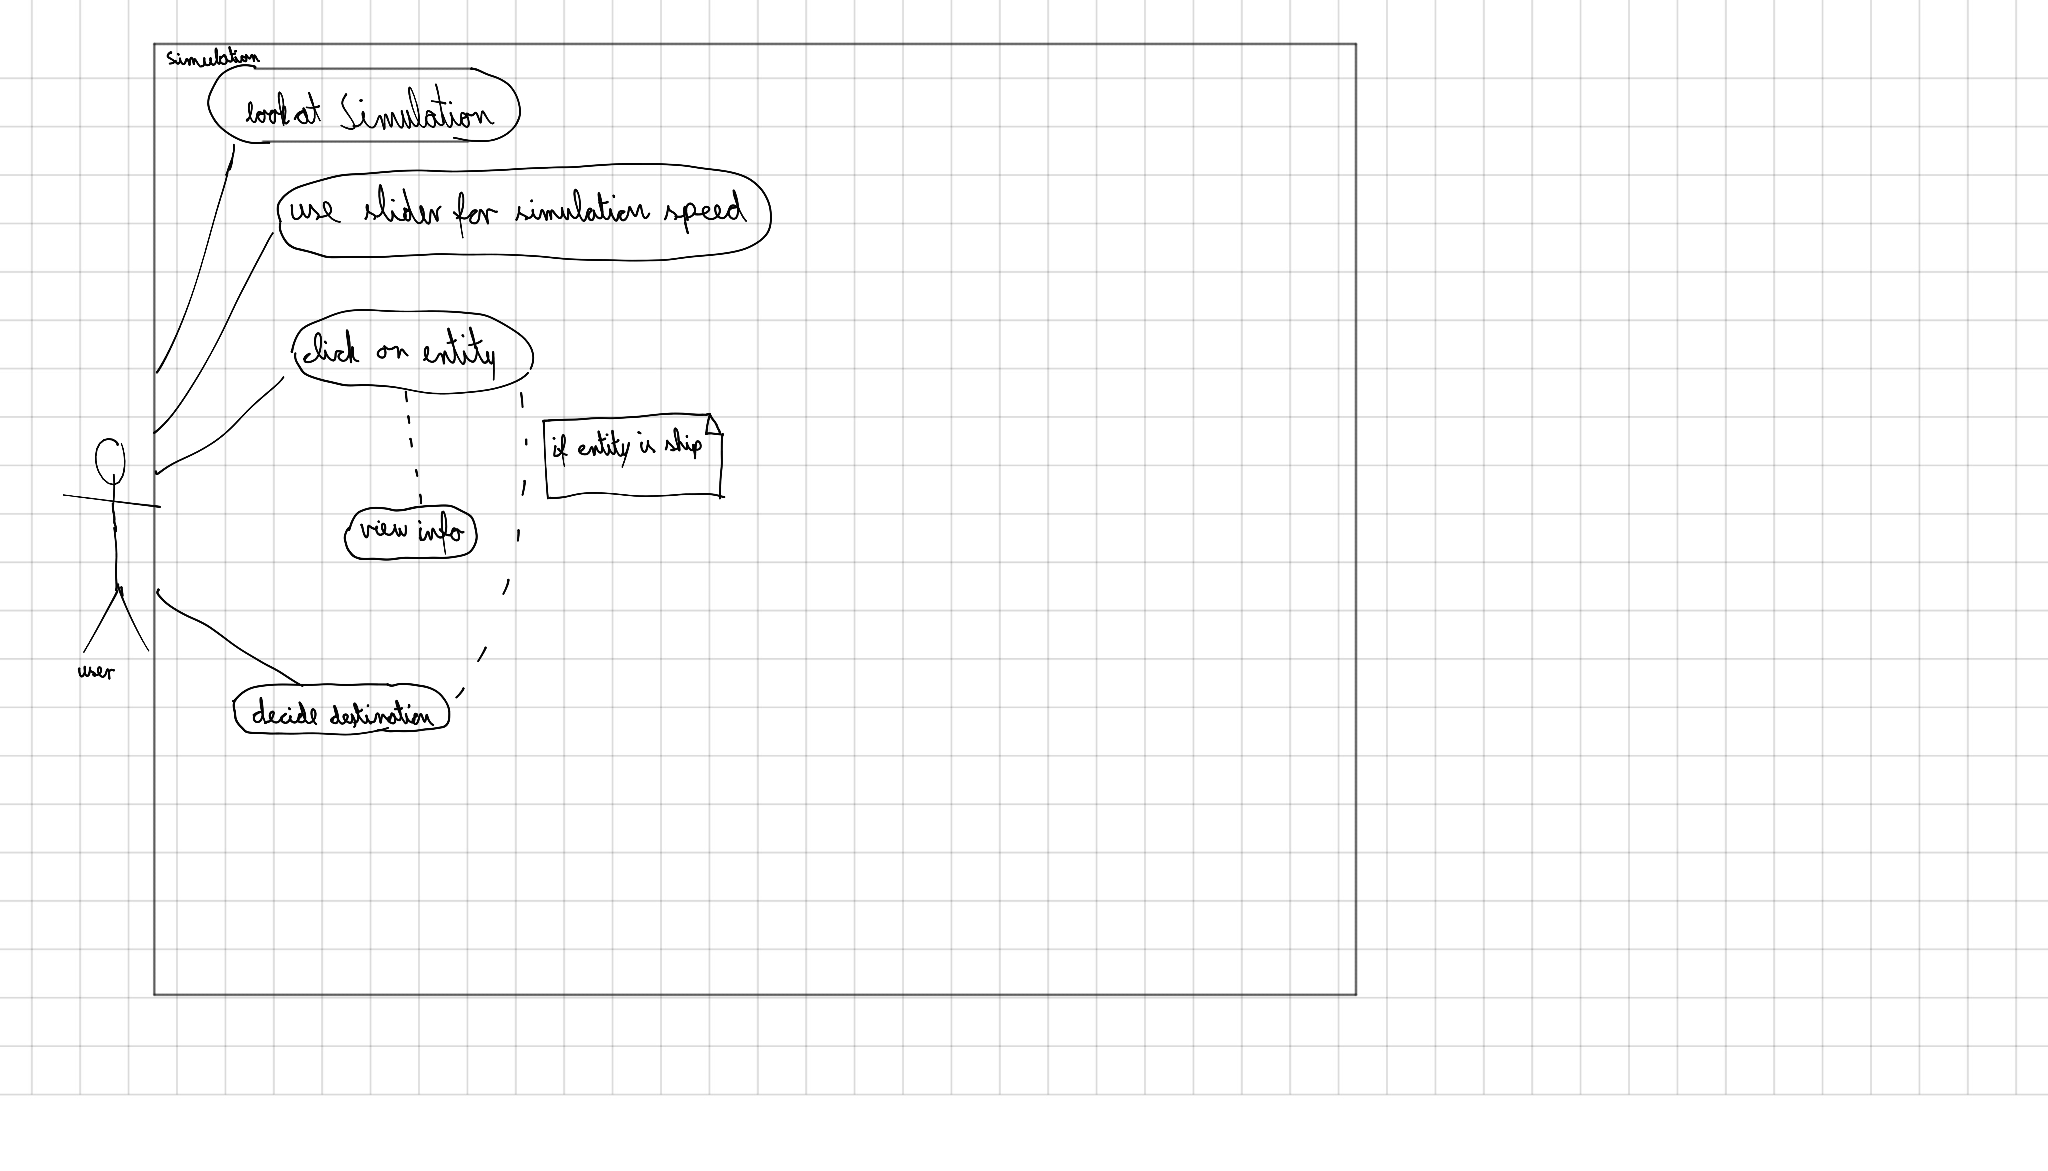 simulation
look at Simulation
use slider for simulation speed
click on entity
if entity is ship
view info
user
decide destination